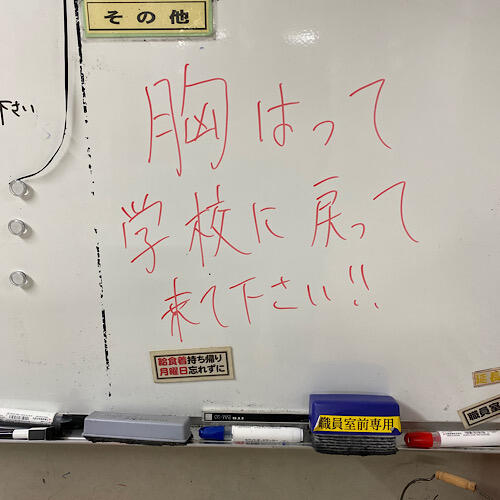 その他
下さい
胸はって
学校に戻って
来て下さい!!
給食着持ち帰り
月曜日忘れずに
職員室前専用
職員室